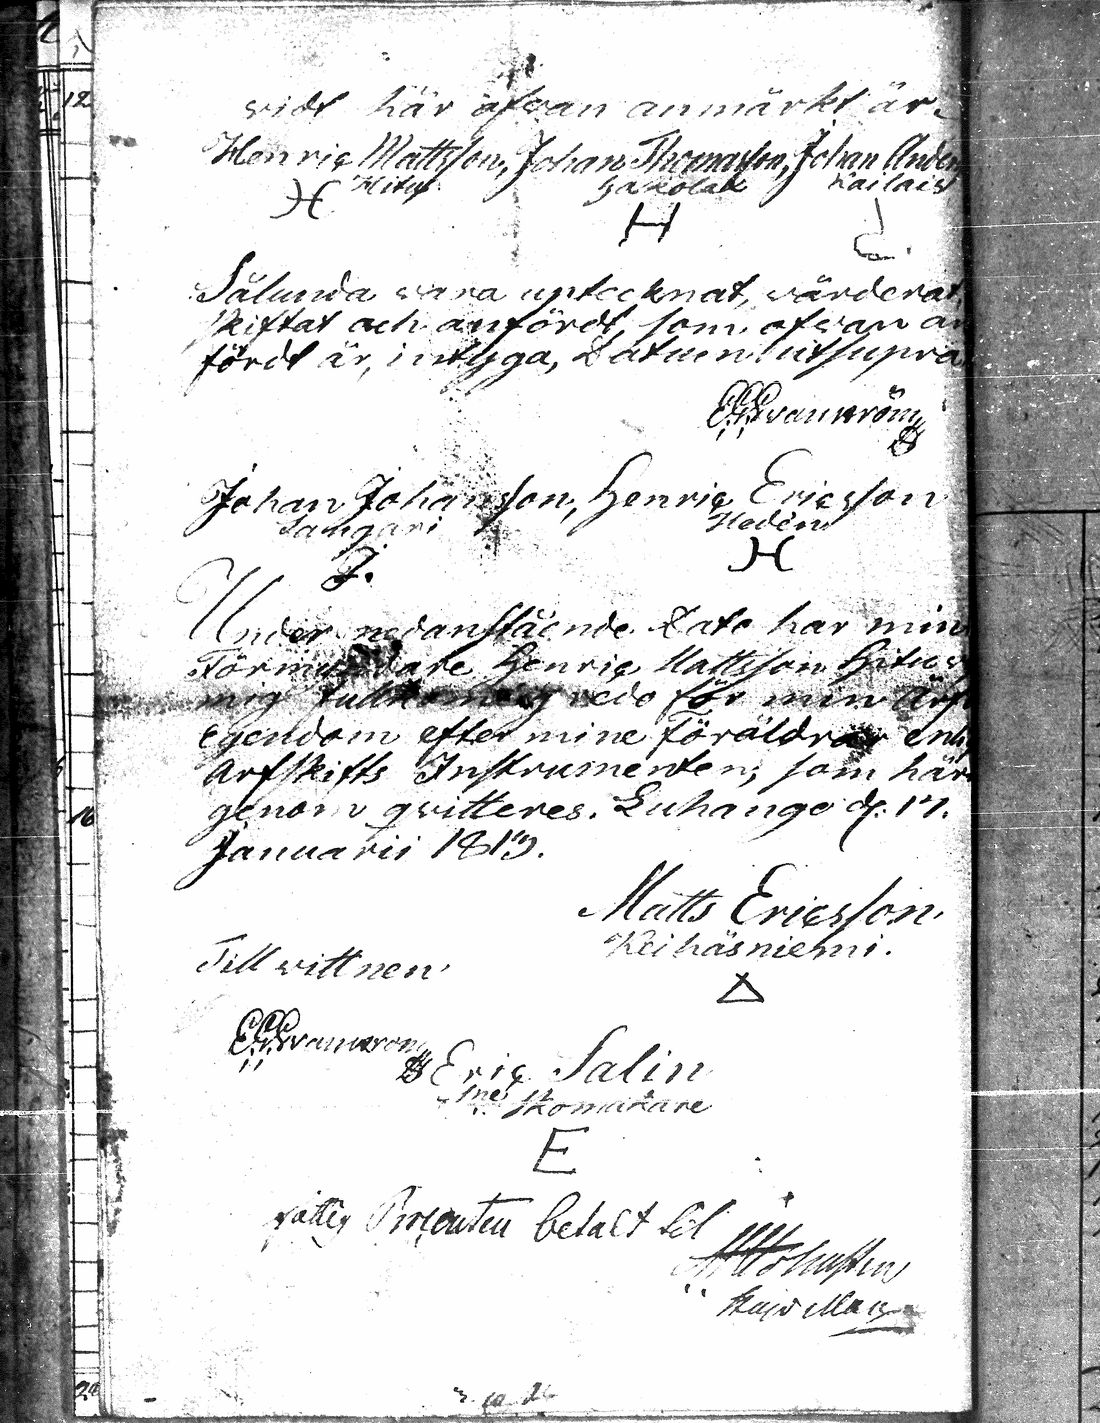 vidt här ofvan anmärkt är.
Henric Mattsson, Johan Thomasson, Johan Ander
Hitus Hakolax Kailais
H H
Sålunda vara uptecknat, värderat,
skiftat och anfördt, som ofvan an
fördt är, intyga, Datum utsupra
Johan Johansson, Henric Ericsson
Saingari Hedén
J. H
Under nedanstående Dato har min
Förmyndare Henric Mattsson Hitus
mig fullkomlig redo för min Arf
egendom efter mine Föräldrar enl
Arfskifts Instrumenten, som här
genom qvitteres. Luhango d. 17.
Januarii 1819.
Matts Ericsson
Keihäsniemi.
Till vittnen
Eric Salin
Skomakare
E
fattig Procenten betalt til